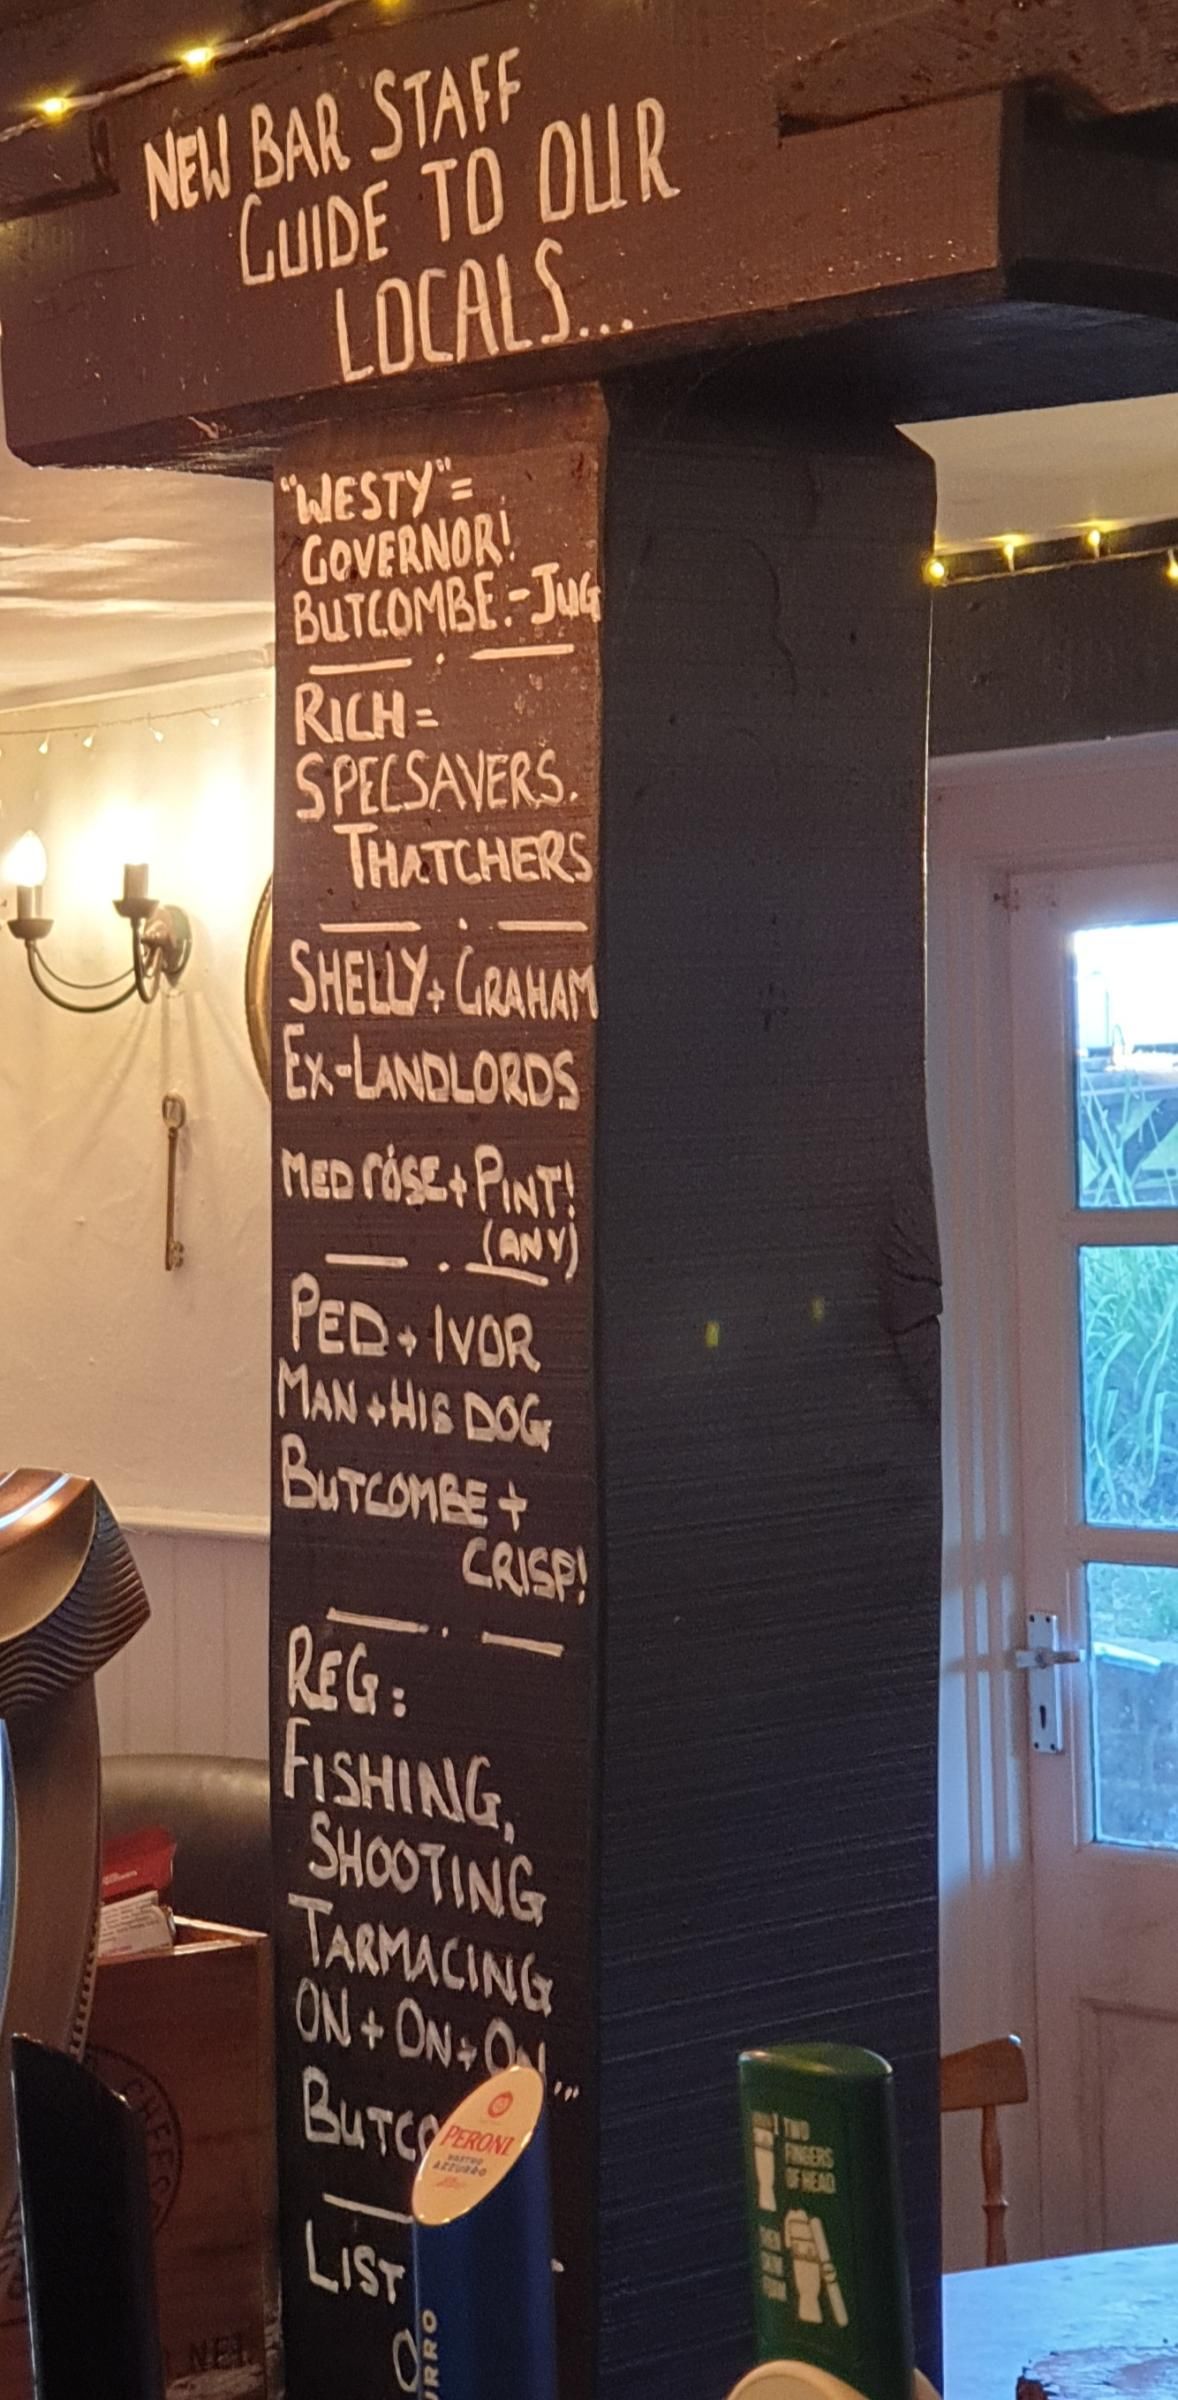 NEW BAR STAFF
GUIDE TO OUR
LOCALS...
"WESTY"=
GOVERNOR!
BUTCOMBE.-JUG
RICH=
SPECSAVERS.
THATCHERS
SHELLY + GRAHAM
EX-LANDLORDS
MED róse + PINT!
(ANY)
PED + IVOR
MAN + HIS DOG
BUTCOMBE +
CRISP!
REG:
FISHING,
SHOOTING
TARMACING
ON + ON + ON...
BUTCO
LIST
PERONI
NASTRO
AZZURRO
URRO
TWO
FINGERS
OF HEAD